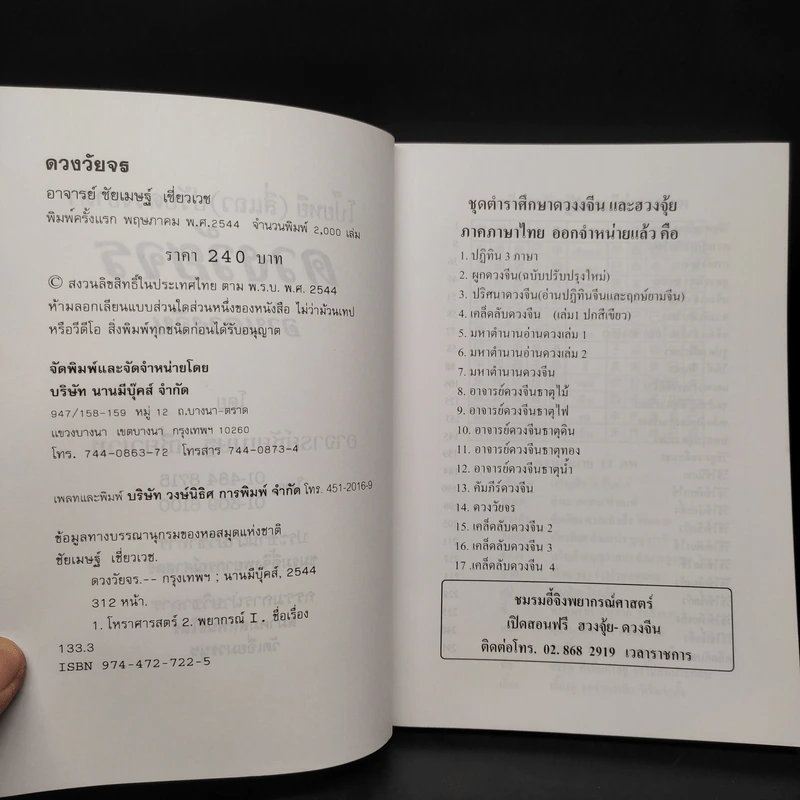 ดวงวัยจร
อาจารย์ ชัยเมษฐ์ เชี่ยวเวช
พิมพ์ครั้งแรก พฤษภาคม พ.ศ.2544 จำนวนพิมพ์ 2,000 เล่ม
ราคา 240 บาท
© สงวนลิขสิทธิ์ในประเทศไทย ตาม พ.ร.บ. พ.ศ. 2544
ห้ามลอกเลียนแบบส่วนใดส่วนหนึ่งของหนังสือ ไม่ว่าม้วนเทป
หรือวีดีโอ สิ่งพิมพ์ทุกชนิดก่อนได้รับอนุญาต
จัดพิมพ์และจัดจำหน่ายโดย
บริษัท นานมีบุ๊คส์ จำกัด
947/158-159 หมู่ 12 ถ.บางนา-ตราด
แขวงบางนา เขตบางนา กรุงเทพฯ 10260
โทร. 744-0863-72 โทรสาร 744-0873-4
เพลทและพิมพ์ บริษัท วงษ์นิธิศ การพิมพ์ จำกัด โทร. 451-2016-9
ข้อมูลทางบรรณานุกรมของหอสมุดแห่งชาติ
ชัยเมษฐ์ เชี่ยวเวช.
ดวงวัยจร.-- กรุงเทพฯ : นานมีบุ๊คส์, 2544
312 หน้า.
1. โหราศาสตร์ 2. พยากรณ์ I. ชื่อเรื่อง
133.3
ISBN 974-472-722-5
ชุดตำราศึกษาดวงงจีน และฮวงจุ้ย
ภาคภาษาไทย ออกจำหน่ายแล้ว คือ
1. ปฏิทิน 3 ภาษา
2. ผูกดวงจีน(ฉบับปรับปรุงใหม่)
3. ปริศนาดวงจีน(อ่านปฏิทินจีนและฤกษ์ยามจีน)
4. เคล็ดลับดวงจีน (เล่ม1 ปกสีเขียว)
5. มหาตำนานอ่านดวงเล่ม 1
6. มหาตำนานอ่านดวงเล่ม 2
7. มหาตำนานดวงจีน
8. อาจารย์ดวงจีนธาตุไม้
9. อาจารย์ดวงจีนธาตุไฟ
10. อาจารย์ดวงจีนธาตุดิน
11. อาจารย์ดวงจีนธาตุทอง
12. อาจารย์ดวงจีนธาตุน้ำ
13. คัมภีร์ดวงจีน
14. ดวงวัยจร
15. เคล็ดลับดวงจีน 2
16. เคล็ดลับดวงจีน 3
17 .เคล็ดลับดวงจีน 4
ชมรมอี้จิงพยากรณ์ศาสตร์
เปิดสอนฟรี ฮวงจุ้ย- ดวงจีน
ติดต่อโทร. 02. 868 2919 เวลาราชการ